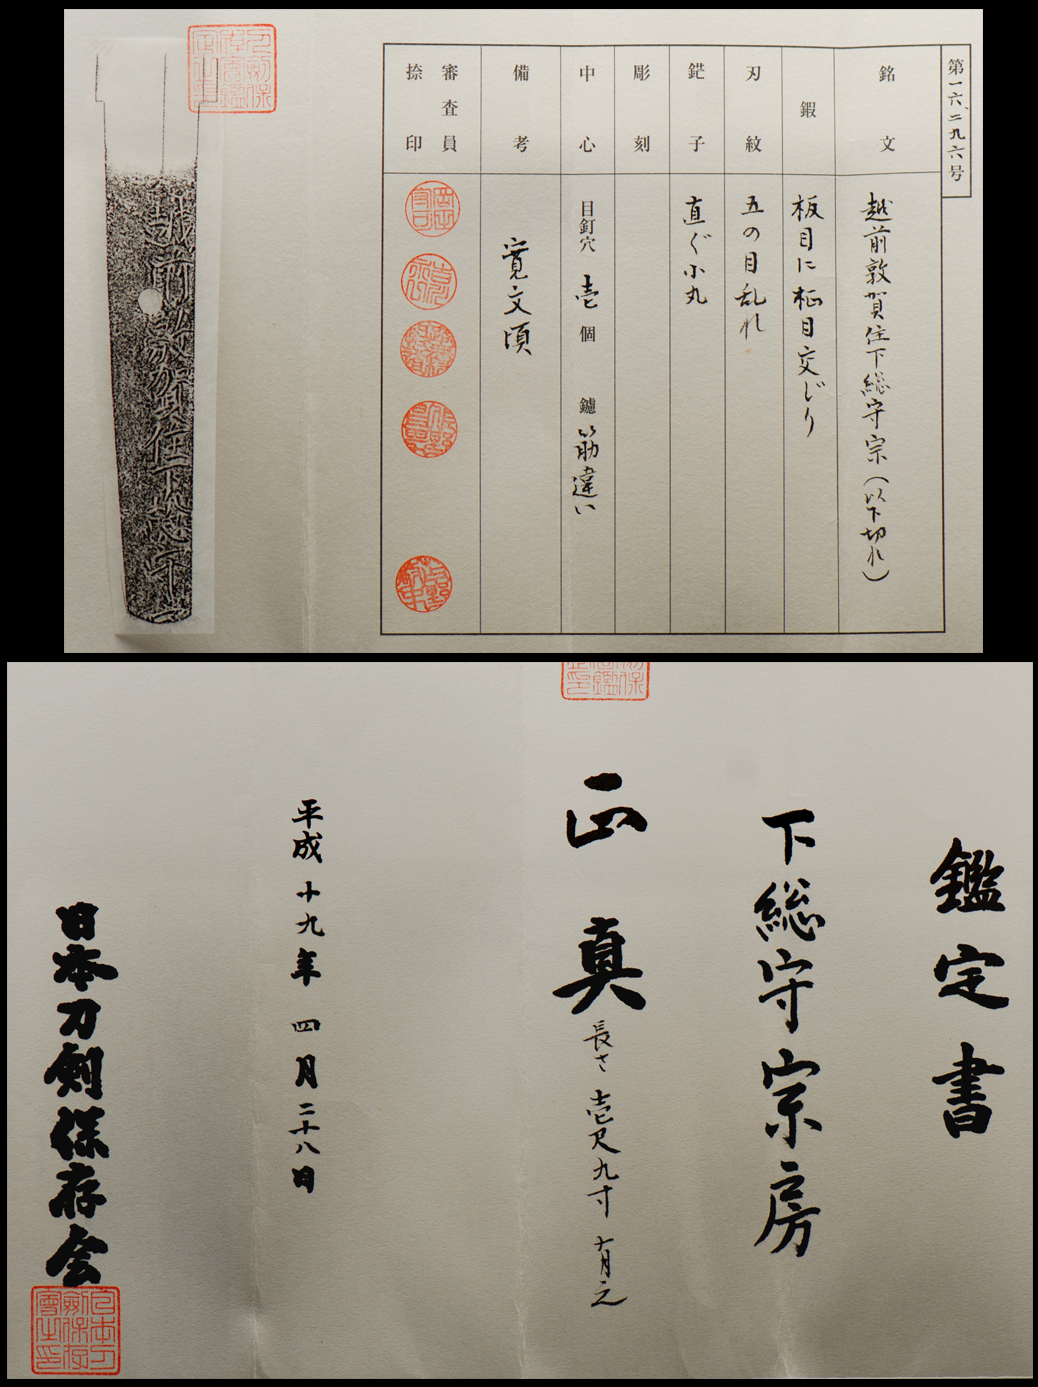 第一六、二九六号
銘文
越前敦賀住下総守宗（以下切れ）
鍜
板目に柾目交じり
刃紋
五の目乱れ
鋩子
直ぐ小丸
彫刻
中心
目釘穴 壱 個 鑢 筋違い
備考
寛文頃
審査員
捺印
越前敦賀住下総守宗
鑑定書
下総守宗房
正真
長さ 壱尺九寸 有之
平成十九年 四月二十八日
日本刀剣保存会